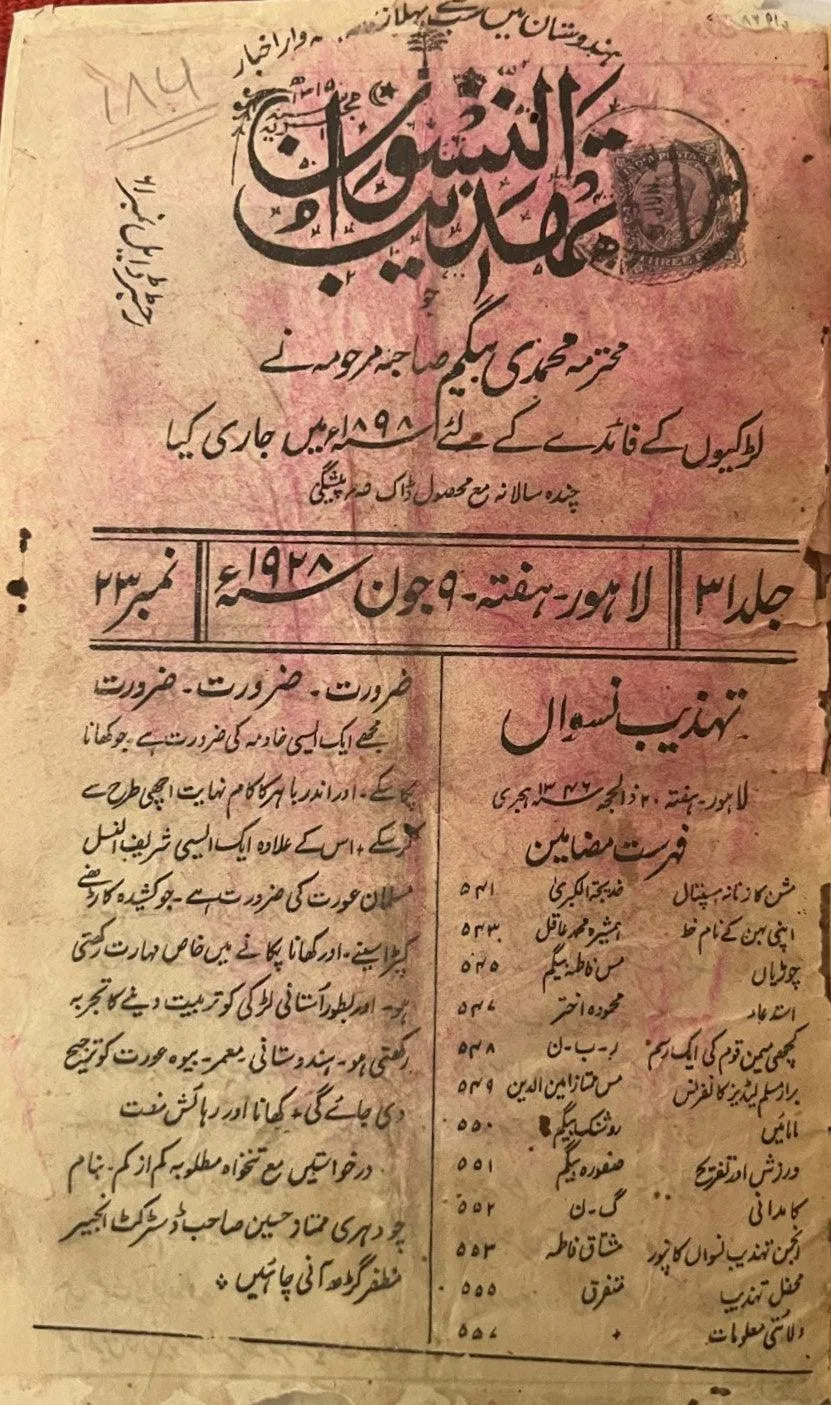 ہندوستان میں سب سے پہلا زنانہ ہفتہ وار اخبار
۱۸۴
تہذیب النسوان
سنہ ۱۳۱۵ ہجریہ
رجسٹرڈ ایل نمبر ۶۱
THREE PIES
محترمہ محمدی بیگم صاحبہ مرحومہ نے
لڑکیوں کے فائدے کے لئے سنہ ۱۸۹۸ء میں جاری کیا
چندہ سالانہ مع محصول ڈاک پیشگی
جلد ۳۱ لاہور۔ ہفتہ۔ ۹ جون سنہ ۱۹۲۸ء نمبر ۲۳
تہذیب نسواں
لاہور۔ ہفتہ ۲۰ ذالحجہ سنہ ۱۳۴۶ ہجری
فہرست مضامین
مشن کا زنانہ ہسپتال خدیجۃ الکبریٰ ۵۴۱
اپنی بہن کے نام خط ہمشیرہ محمد عاقل ۵۴۳
چوڑیاں مس فاطمہ بیگم ۵۴۵
استدعاء محمودہ اختر ۵۴۷
کچھی میمن قوم کی ایک رسم ر۔ ب۔ ن ۵۴۸
برار مسلم لیڈیز کانفرنس مس ممتاز امین الدین ۵۴۹
مامائیں روشنک بیگم ۵۵۰
ورزش اور تفریح صفورہ بیگم ۵۵۱
کامدانی گ۔ ن ۵۵۲
انجمن تہذیب نسواں کانپور مشتاق فاطمہ ۵۵۳
محفل تہذیب متفرق ۵۵۵
ولائتی معلومات ۔ ۵۵۷
ضرورت۔ ضرورت۔ ضرورت
مجھے ایک ایسی خادمہ کی ضرورت ہے۔ جو کھانا
پکا سکے۔ اور اندر باہر کا کام نہایت اچھی طرح سے
کر سکے۔ اس کے علاوہ ایک ایسی شریف النسل
مسلمان عورت کی ضرورت ہے۔ جو کشیدہ کاڑھنے
کپڑا سینے۔ اور کھانا پکانے میں خاص مہارت رکھتی
ہو۔ اور بطور اُستانی لڑکی کو تربیت دینے کا تجربہ
رکھتی ہو۔ ہندوستانی۔ معمر۔ بیوہ عورت کو ترجیح
دی جائے گی۔ کھانا اور رہائش مفت
درخواستیں مع تنخواہ مطلوبہ کم از کم۔ بنام
چودہری ممتاز حسین صاحب ڈسٹرکٹ انجنیر
مظفر گڑھ آنی چاہئیں ۔